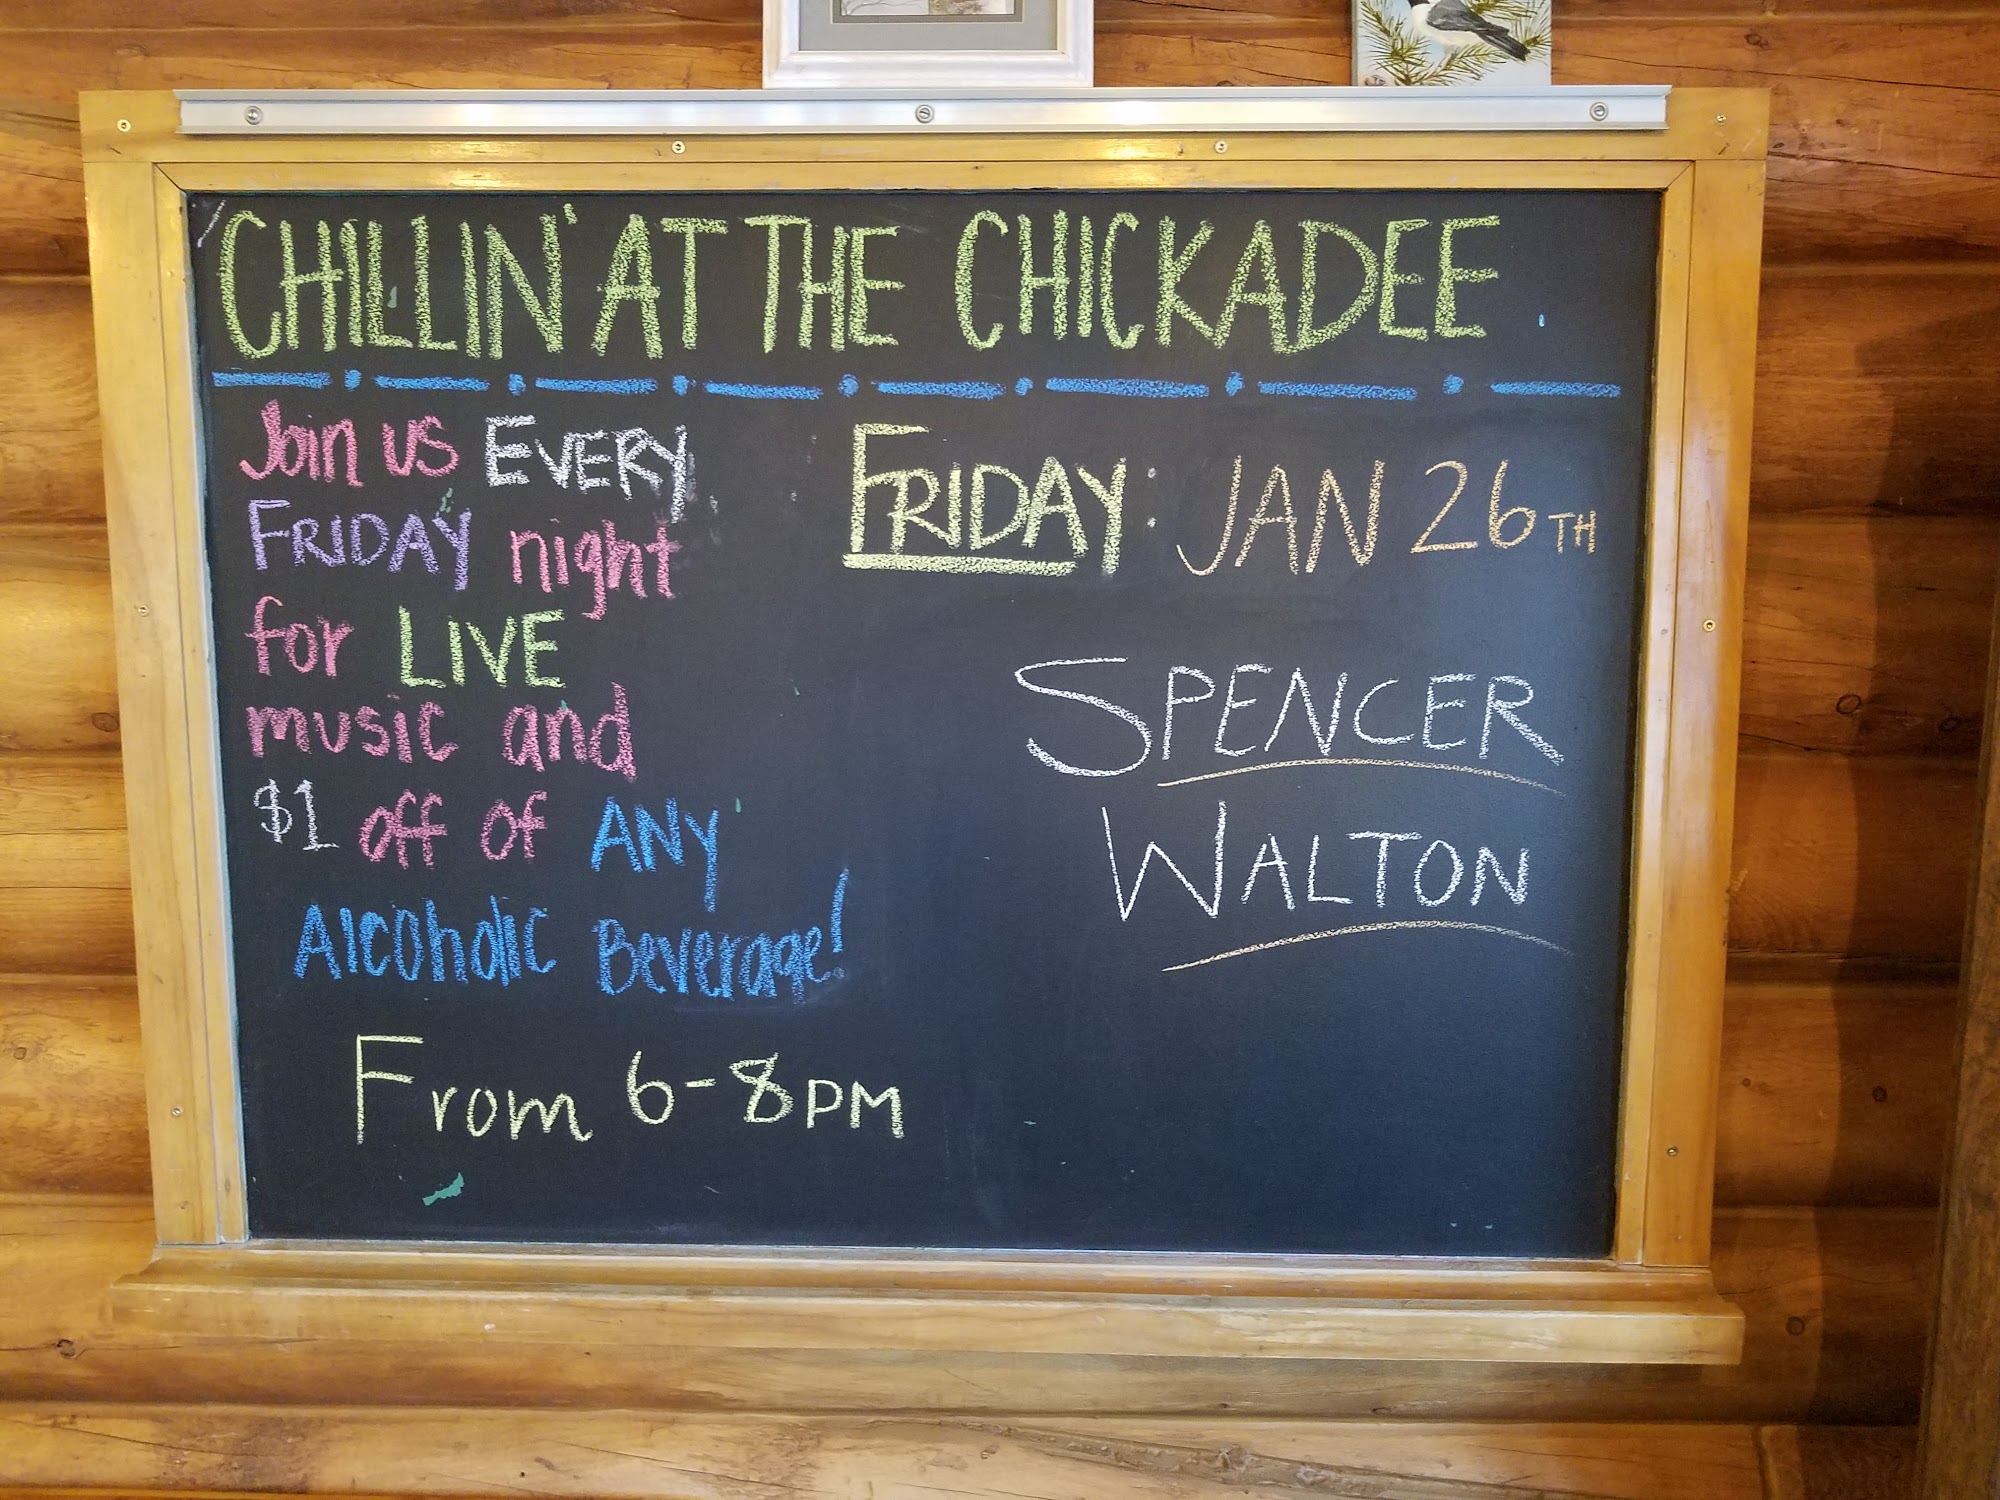 CHILLIN' AT THE CHICKADEE
Join us EVERY
FRIDAY night
for LIVE
music and
$1 off of ANY
Alcoholic Beverage!
From 6-8PM
FRIDAY: JAN 26TH
SPENCER
WALTON